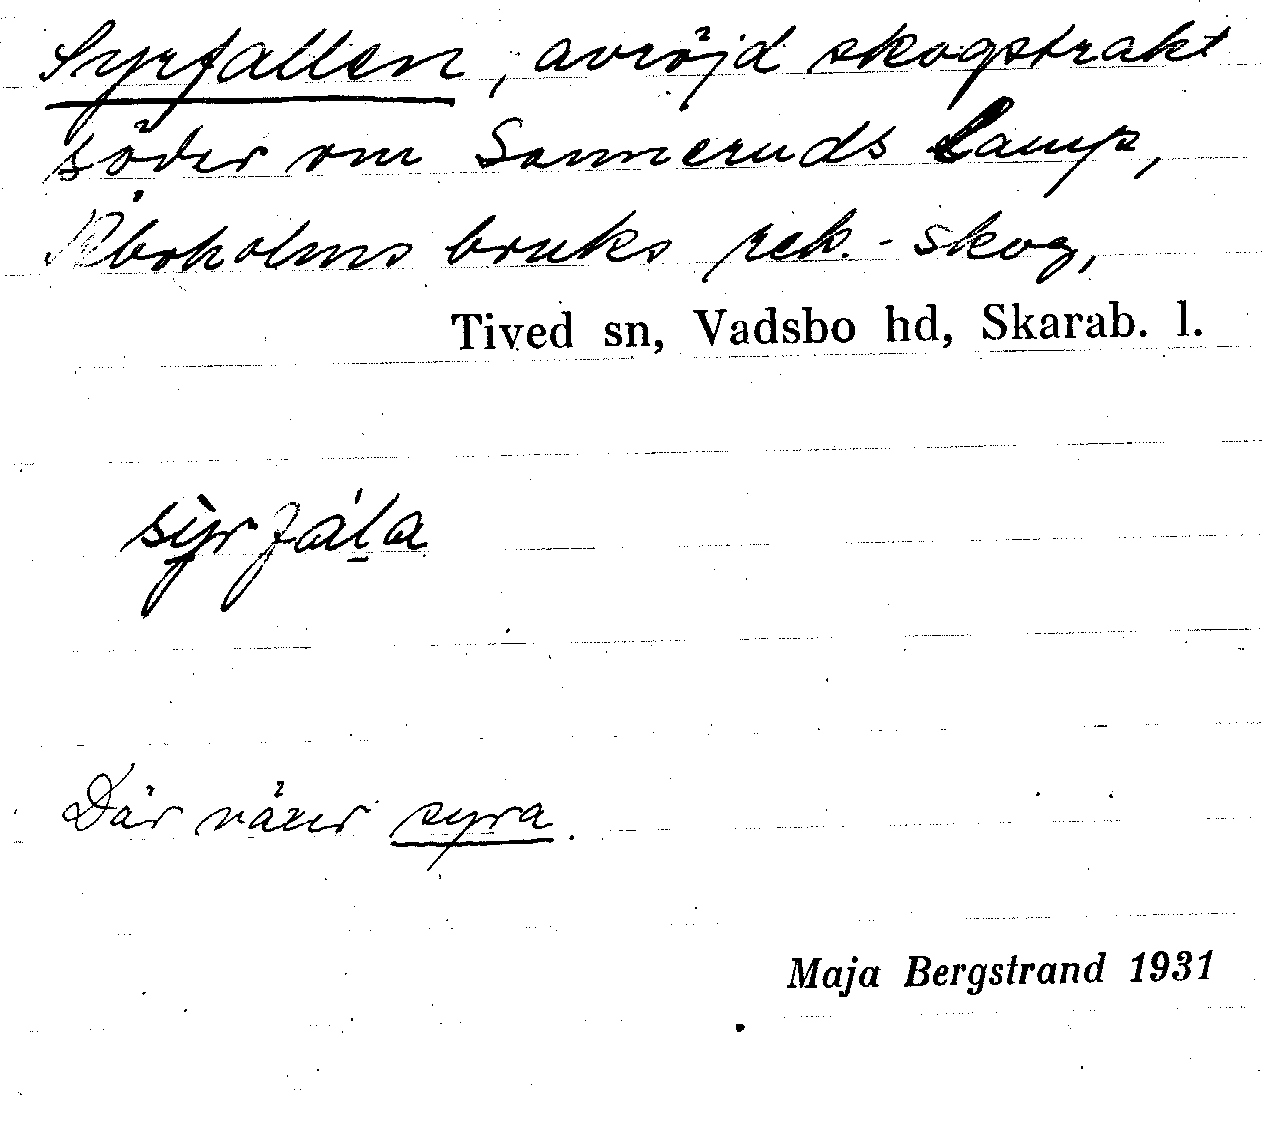 Syrfallen, avröjd skogstrakt
söder om Sanneruds camp,
Åboholms bruks rek.-skog,
Tived sn, Vadsbo hd, Skarab. l.
sỳrfála
Där växer syra.
Maja Bergstrand 1931